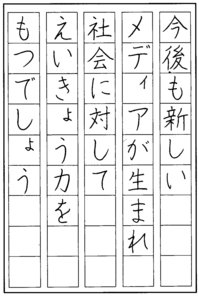 今後も新しい
メディアが生まれ
社会に対して
えいきょう力を
もつでしょう